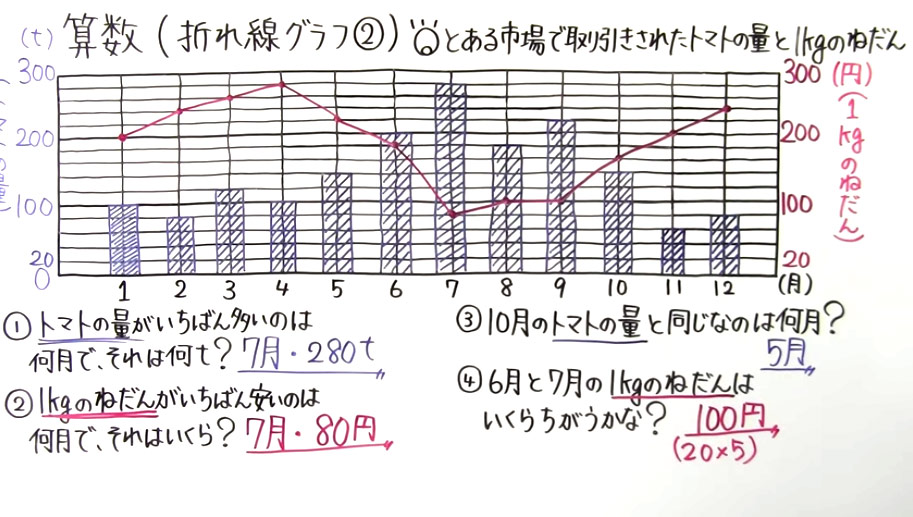 算数(折れ線グラフ②) とある市場で取り引きされたトマトの量と1kgのねだん
(t)
300
200
100
20
0
300 (円)
200
100
20
(1kgのねだん)
1 2 3 4 5 6 7 8 9 10 11 12 (月)
① トマトの量がいちばん多いのは
何月で、それは何t? 7月・280t
② 1kgのねだんがいちばん安いのは
何月で、それはいくら? 7月・80円
③ 10月のトマトの量と同じなのは何月?
5月
④ 6月と7月の1kgのねだんは
いくらちがうかな? 100円
(20×5)